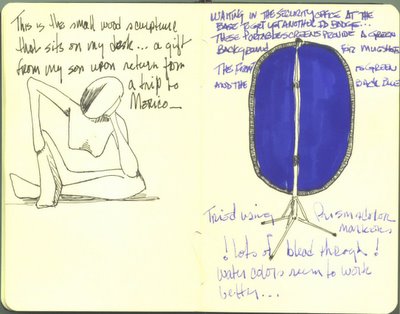 This is the small wood sculpture
that sits on my desk... a gift
from my son upon return from
a trip to
Mexico
WAITING IN THE SECURITY OFFICE AT THE
BASE TO GET YET ANOTHER ID BADGE...
THESE PORTABLE SCREENS PROVIDE A GREEN
BACKGROUND FOR
THE FRONT IS GREEN
AND THE BACK BLUE
Tried using Prismacolor
markers
! lots of bleed through !
water colors seem to work
better...